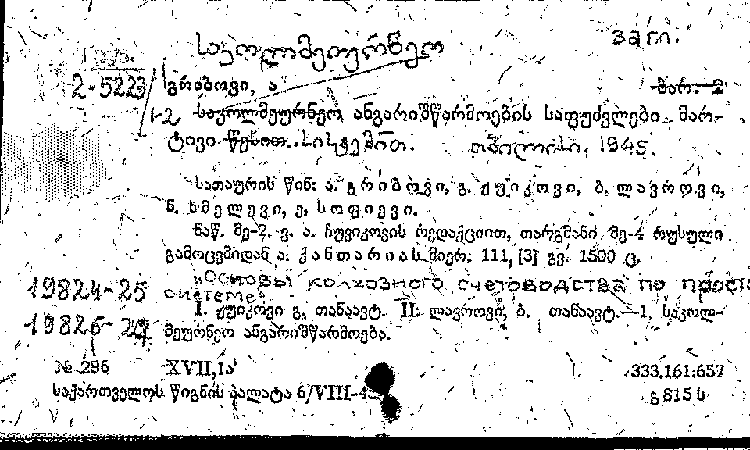 საკოლმეურნეო
ვარ.
2-5223 გრიბოვი, ა
1-2 საკოლმეურნეო ანგარიშწარმოების საფუძვლები მარ-
ტივი წესით. სისტემით. თბილისი, 1945.
სათაურის წინ: ა. გრიბოვი, გ. ჟუიკოვი, ბ. ლავროვი,
ნ. ხმელევი, ე. სოფიევი.
ნაწ. მე-2. ვ. ა. ჩუვიკოვის რედაქციით, თარგმანი მე-4 რუსული
გამოცემიდან ა. ქანთარიას მიერ. 111, [3] გვ. 1500 ც.
„Основы колхозного счетоводства по простой
системе“
19824-25
I. ჟუიკოვი გ. თანაავტ. II. ლავროვი, ბ. თანაავტ.—1, საკოლ-
19826-27
მეურნეო ანგარიშწარმოება.
№ 296 XVII,1ა 333.161:657
საქართველოს წიგნის პალატა 6/VIII-4 გ 815 ს